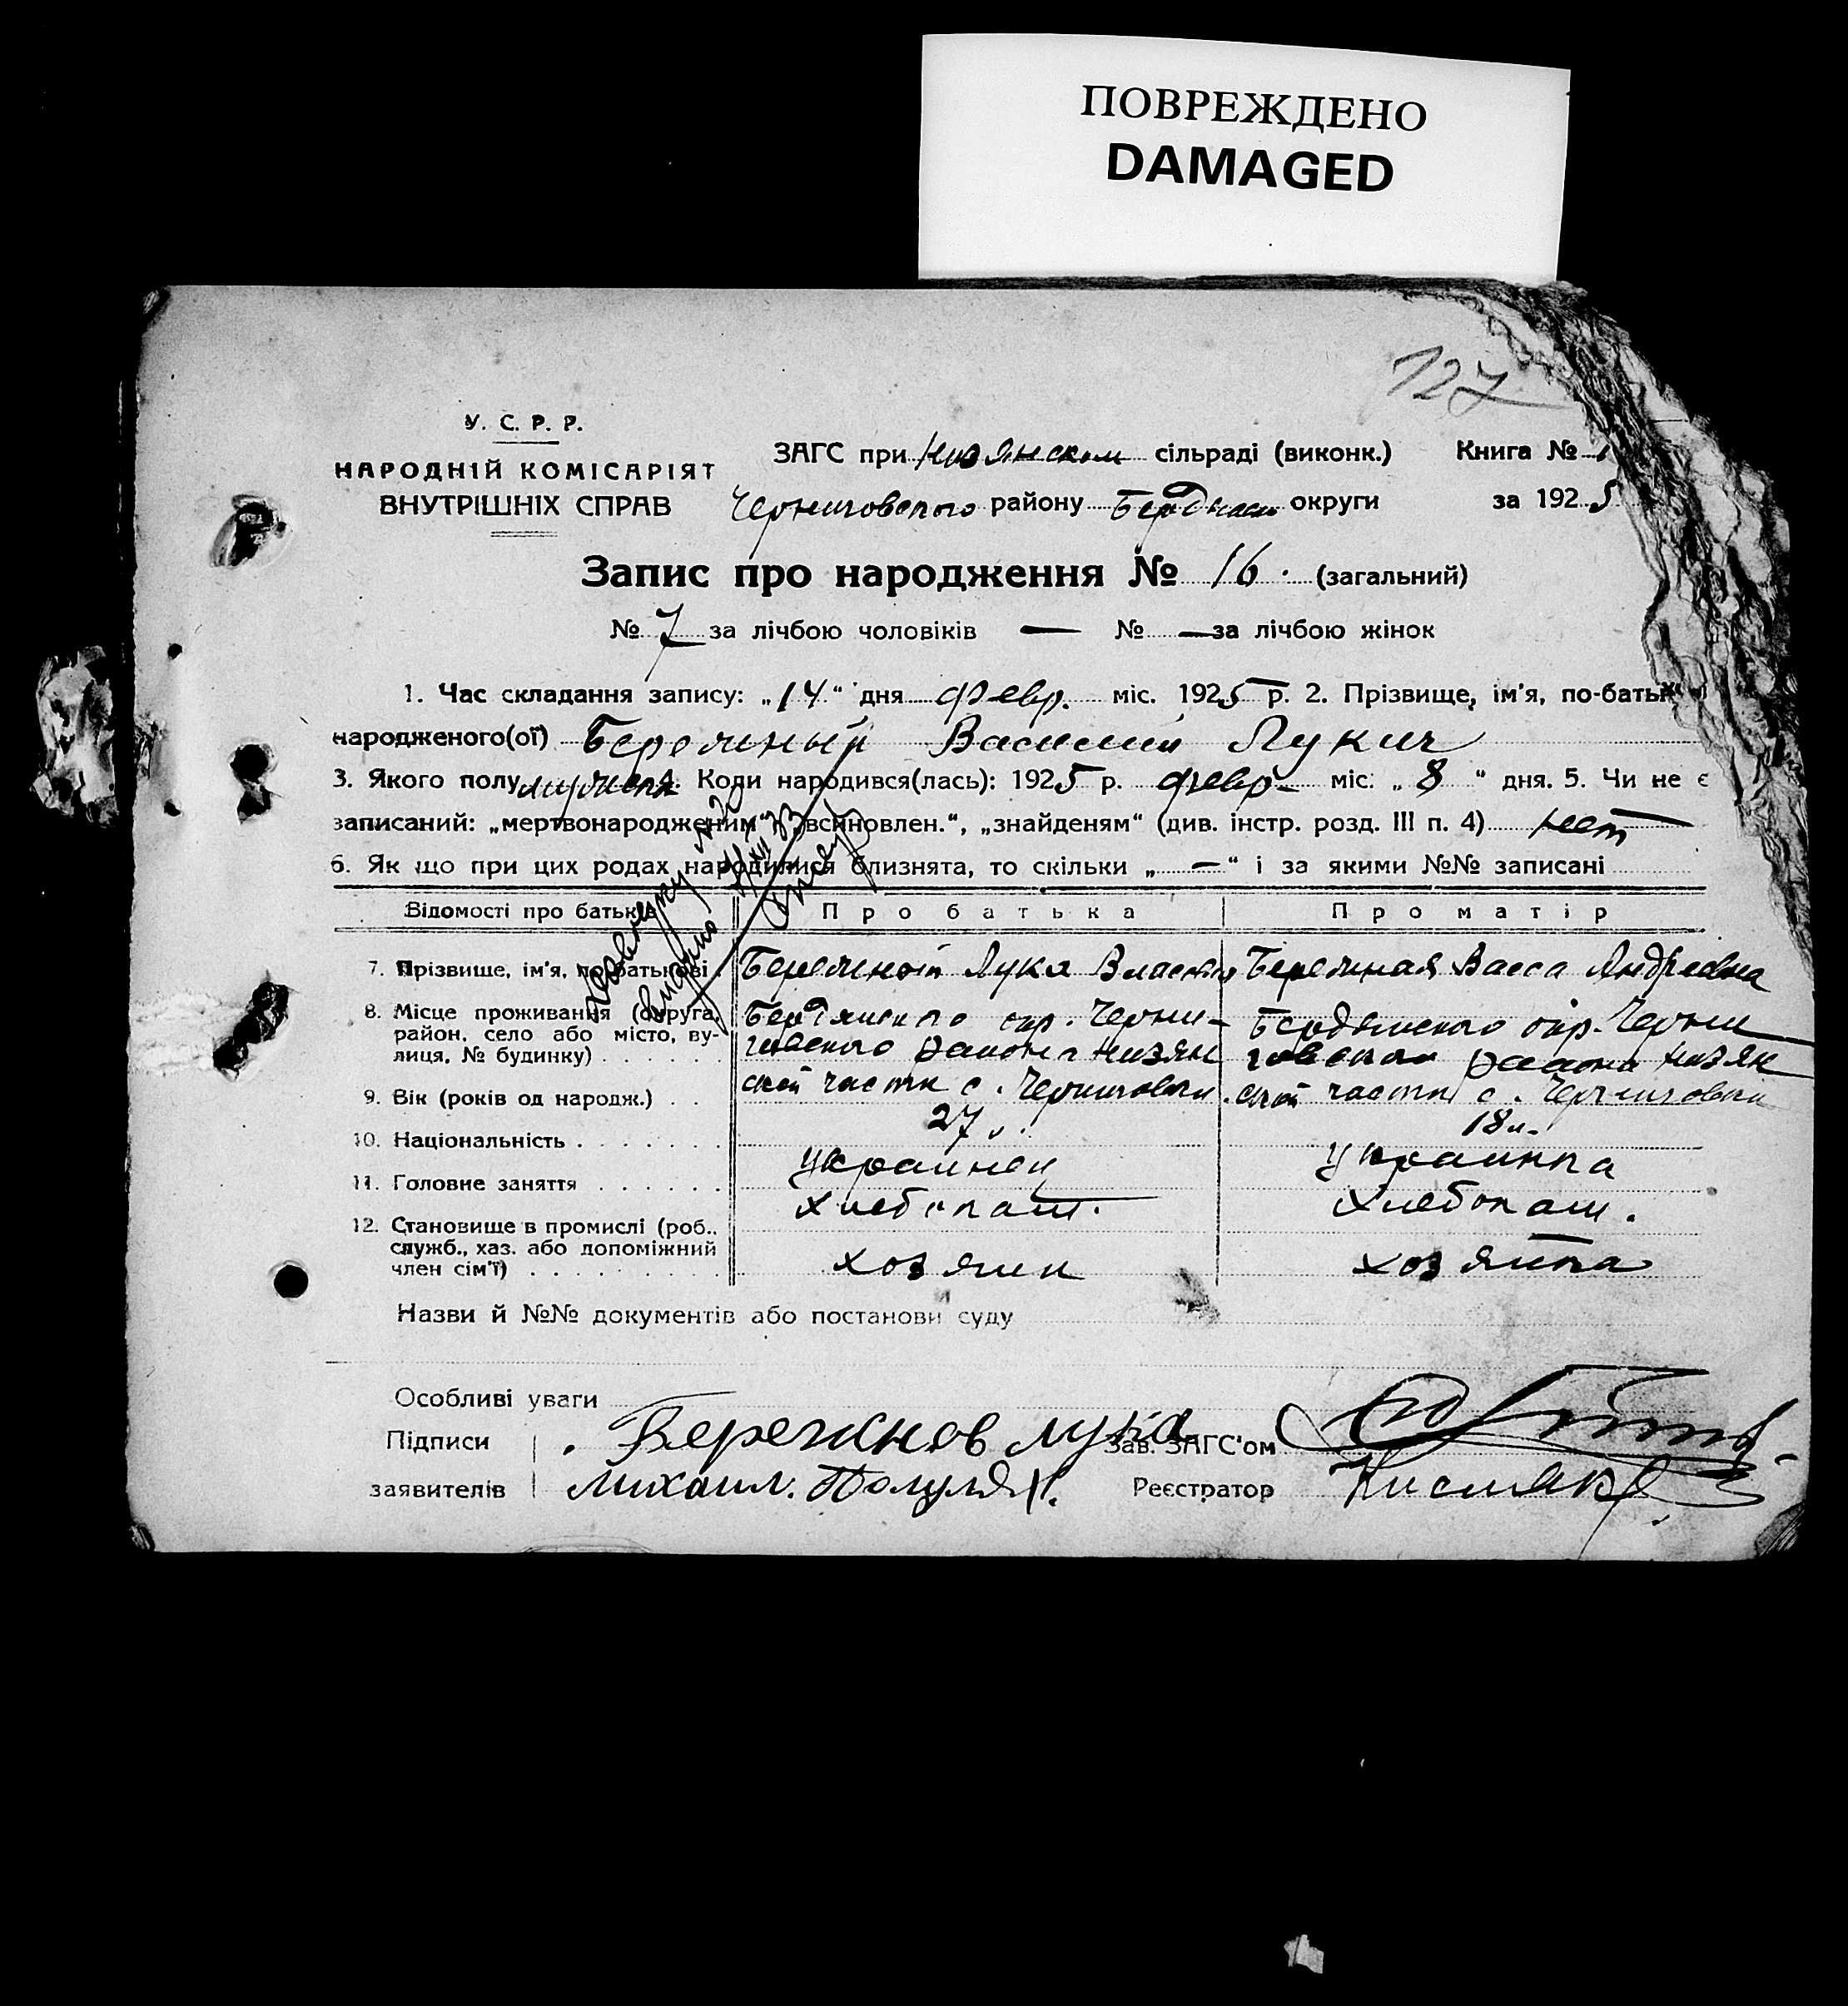 ПОВРЕЖДЕНО
DAMAGED
127
У. С. Р. Р.
НАРОДНІЙ КОМІСАРІЯТ
ВНУТРІШНІХ СПРАВ
ЗАГС при Низянском сільраді (виконк.) Книга № 1
Черниговского району Бердянск округи за 1925
Запис про народження № 16. (загальний)
№ 7 за лічбою чоловіків — № — за лічбою жінок
1. Час складання запису: „14“ дня февр. міс. 1925 р. 2. Прізвище, ім'я, по-батьк
народженого(ої) Бережный Василий Лукич
3. Якого полу мужска 4. Коли народився(лась): 1925 р. февр- міс. „8“ дня. 5. Чи не є
записаний: „мертвонародженим“, „всиновлен.“, „знайденям“ (див. інстр. розд. III п. 4) нет
6. Як що при цих родах народилися близнята, то скільки „—“ і за якими №№ записані
Відомості про батьків Про батька Про матір
7. Прізвище, ім'я, по батькові. Бережной Лука Власов Бережная Васса Андреевна
8. Місце проживання (округа, район, село або місто, вулиця, № будинку)
Бердянского окр. Черни- Бердянского окр. Черни
говского района Низян говского района Низян
ской части с. Черниговки. ской части с. Черниговки
9. Вік (років од народж.) 27 18 л.
10. Національність украинец украинка
11. Головне заняття хлебопаш. хлебопаш.
12. Становище в промислі (роб., служб., хаз. або допоміжний член сім'ї) хозяин хозяйка
Назви й №№ документів або постанови суду
Особливі уваги
Підписи Бережнов лука Зав. ЗАГС'ом
заявителів Михаил. Реєстратор Кисляк